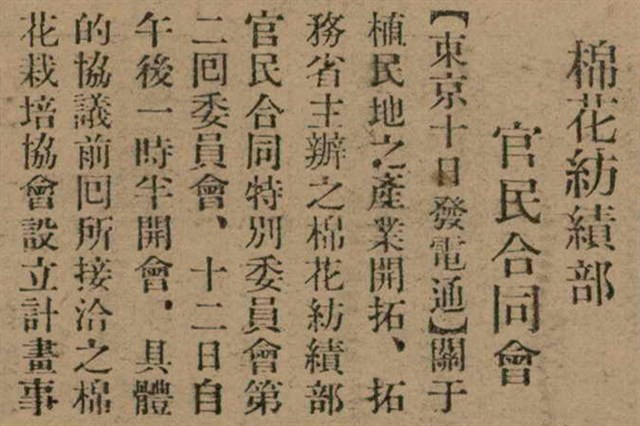 棉花紡績部
官民合同會
【東京十日發電通】關于
植民地之產業開拓、拓
務省主辦之棉花紡績部
官民合同特別委員會第
二囘委員會、十二日自
午後一時半開會、具體
的協議前囘所接洽之棉
花栽培協會設立計畫事